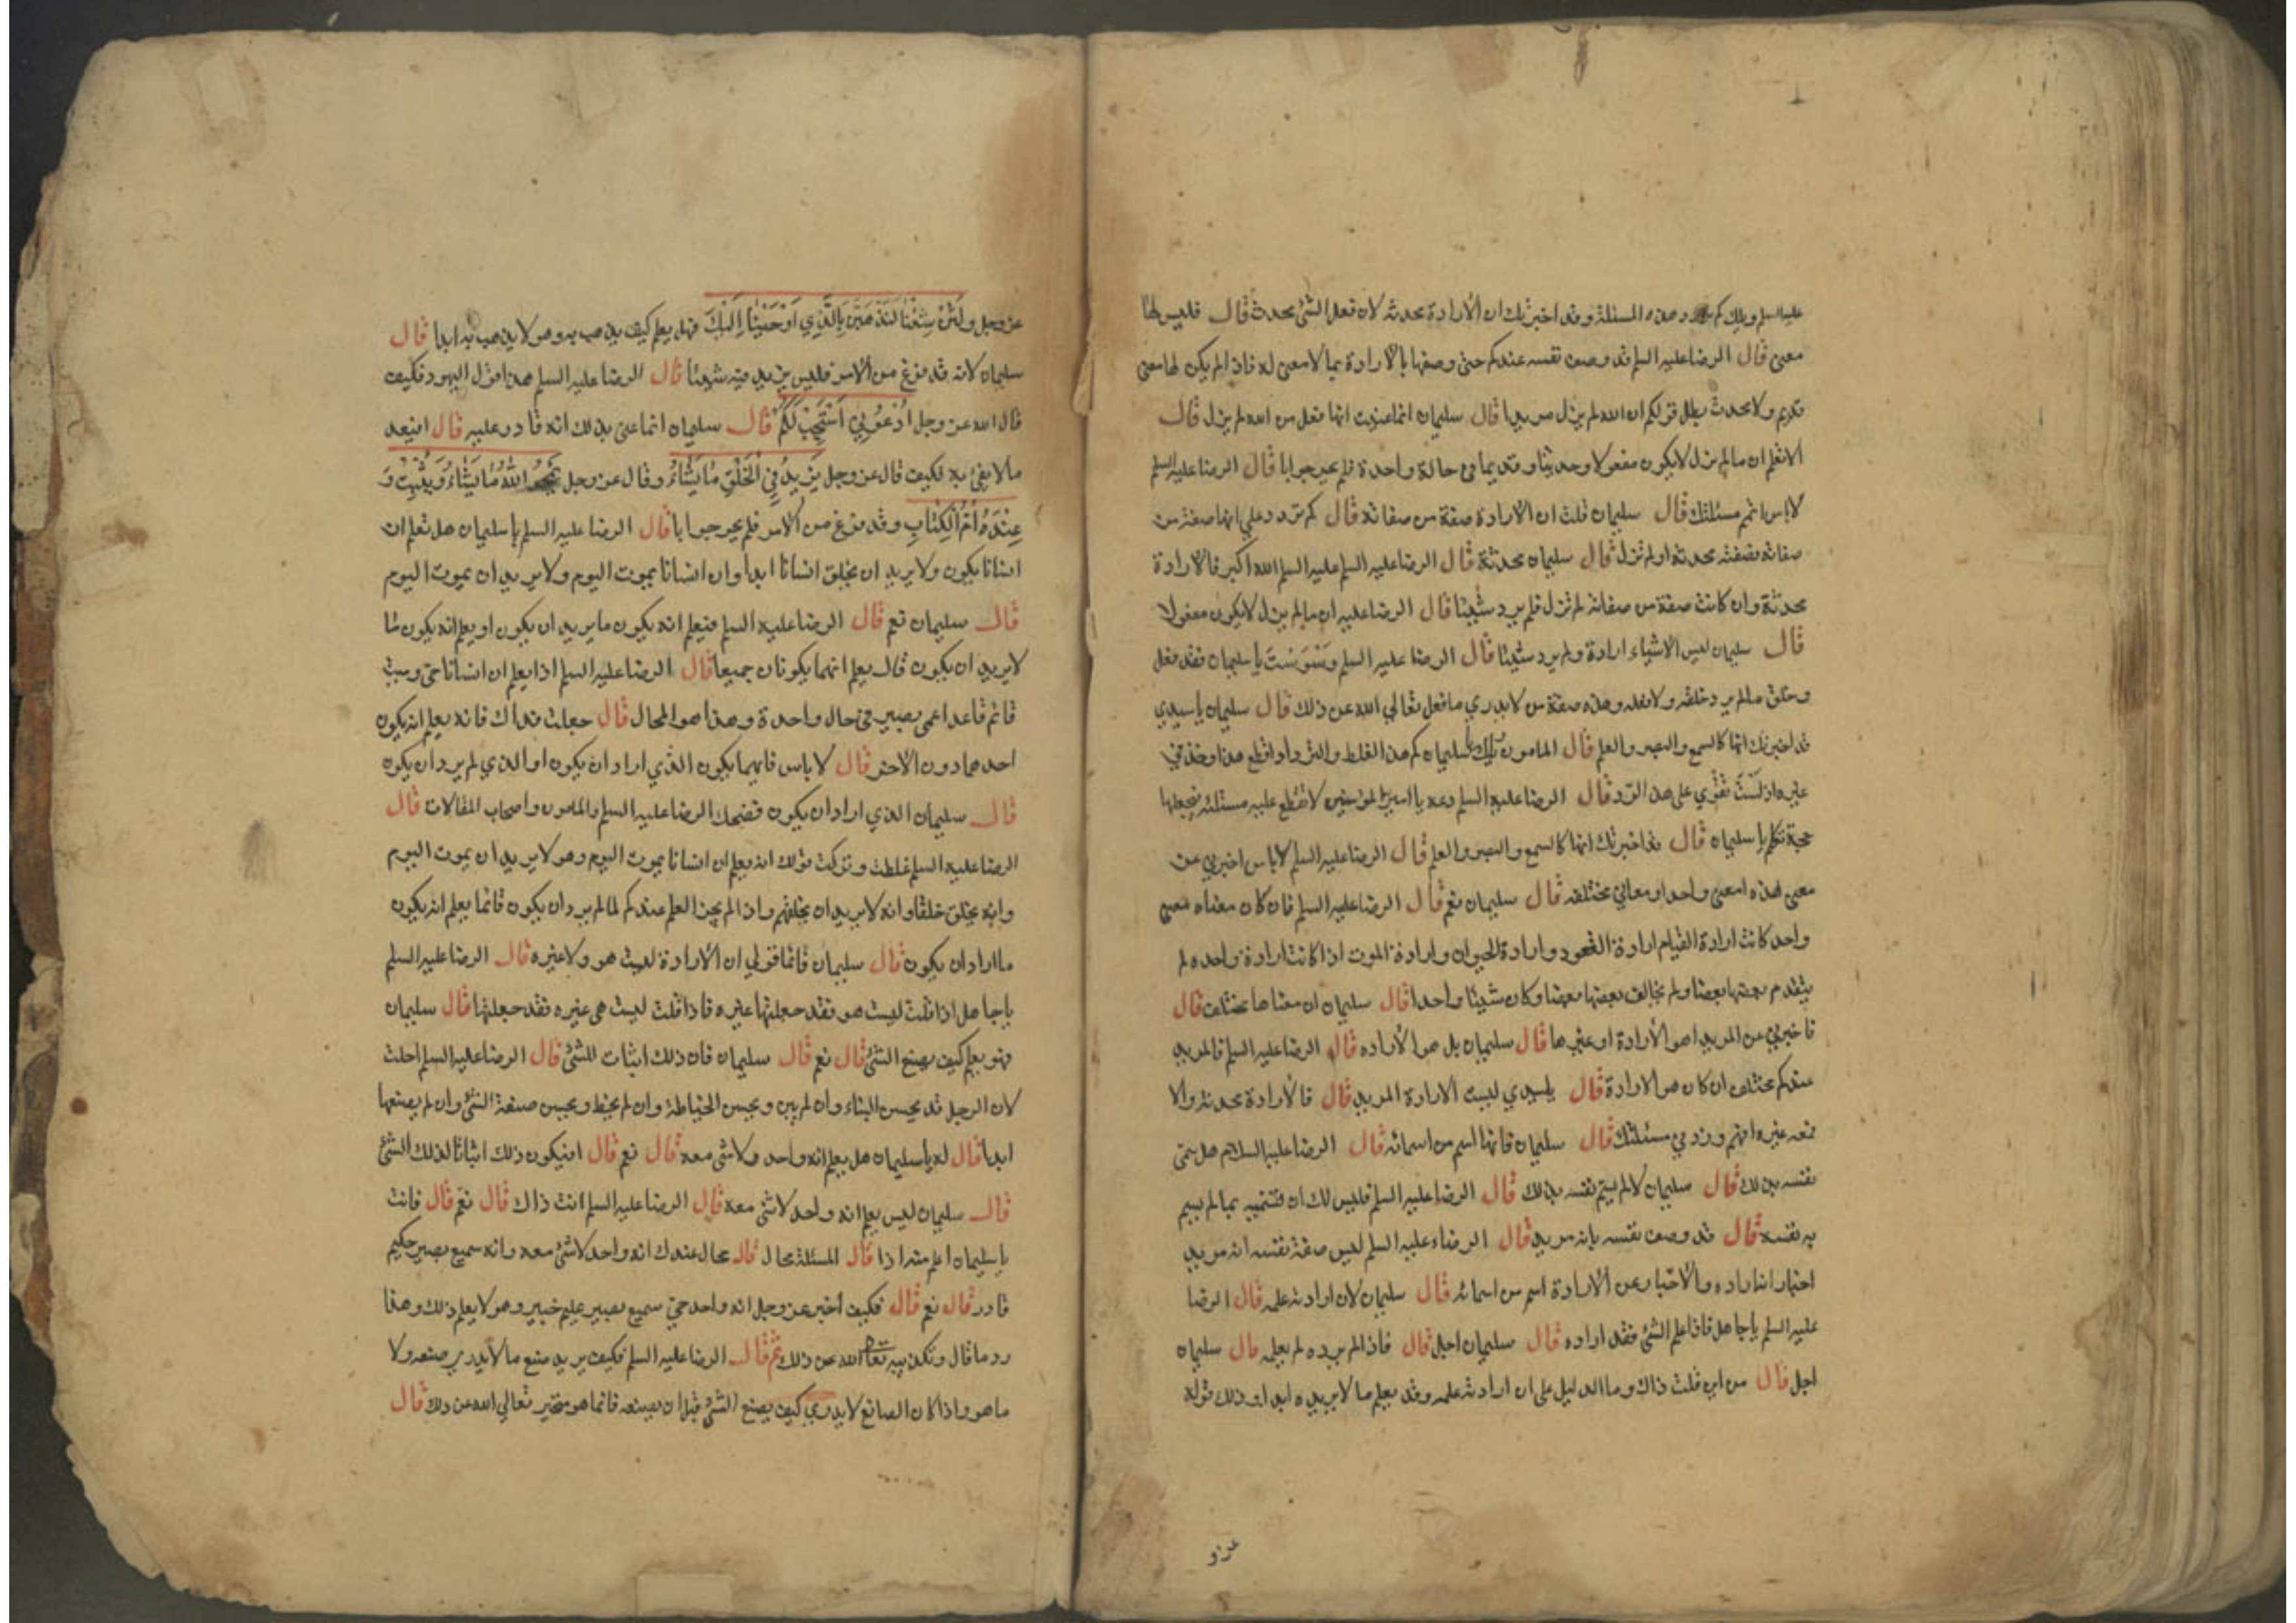 عليه السلم ويلك كم تردد هذه المسئلة وقد اخبرتك ان الأرادة محدثه لان فعل الشئ محدث قال فليس لها
معنى قال الرضا عليه السلم قد وصف نفسه عندكم حتى وصفها بالارادة بما لا معنى له فاذا لم يكن لها معنى
قديم ولا محدث بطل قولكم ان الله لم يزل مريدا قال سليمان انما عنيت انها فعل من الله لم يزل قال
الا تعلم ان ما لم يزل لا يكون مفعولا وحديثا وقديما في حالة واحدة فلم يحر جوابا قال الرضا عليه السلم
لا باس اتمم مسئلتك قال سليمان قلت ان الارادة صفة من صفاته قال كم تردد علي انها صفة من
صفاته فصفته محدثة او لم تزل قال سليمان محدثة قال الرضا عليه السلم عليه السلم الله اكبر فالارادة
محدثة وان كانت صفة من صفاته لم تزل فلم يرد شيئا قال الرضا عليه ان ما لم يزل لا يكون مفعولا
قال سليمان ليس الاشياء ارادة ولم يرد شيئا قال الرضا عليه السلم وسوست يا سليمان فقد فعل
وخلق ما لم يرد خلقه ولا فعله وهذه صفة من لا يدري ما فعل تعالي الله عن ذلك قال سليمان يا سيدي
قد اخبرتك انها كالسمع والبصر والعلم قال المامون ويلك يا سليمان كم هذا الغلط والترداد اقطع هذا وخذ في
غيره اذ لست تقوي على هذا الرد قال الرضا عليه السلم دعه يا امير المؤمنين لا تقطع عليه مسئلته فيجعلها
حجة تكلم يا سليمان قال قد اخبرتك انها كالسمع والبصر والعلم قال الرضا عليه السلم لا باس اخبرني عن
معنى هذه امعنى واحد او معاني مختلفه قال سليمان نعم قال الرضا عليه السلم فان كان معناه معنى
واحد كانت ارادة القيام ارادة القعود وارادة الحيوان وارادة الموت اذا كانت ارادة واحده لم
يتقدم بعضها بعضا ولم يخالف بعضها بعضا وكان شيئا واحدا قال سليمان ان معناها مختلف قال
فاخبرني عن المريد اهو الأرادة او غيرها قال سليمان بل هو الأراده قال الرضا عليه السلم فالمريد
عندكم مختلف ان كان هو الارادة قال يا سيدي ليست الارادة المريد قال فالأرادة محدثة والا
فمعه غيره افهم وزد في مسئلتك قال سليمان فانها اسم من اسمائه قال الرضا عليه السلام هل سمى
نفسه بذلك قال سليمان لا لم يسم نفسه بذلك قال الرضا عليه السلم فليس لك ان تسميه بما لم يسم
به نفسه قال قد وصف نفسه بانه مريد قال الرضاء عليه السلم ليس صفة نفسه انه مريد
اخبار انه اراده والأخبار عن الأرادة اسم من اسمائه قال سليمان لان ارادته علمه قال الرضا
عليه السلم يا جاهل فاذا علم الشئ فقد اراده قال سليمان اجل قال فاذا لم يرده لم يعلمه قال سليمان
اجل قال من اين قلت ذاك وما الدليل على ان ارادته علمه وقد يعلم ما لا يريده ابدا وذلك قوله
عز و
عز وجل ولئن شئنا لنذهبن بالذي اوحينا اليك فهل يعلم كيف يذهب به وهو لا يذهب به ابدا قال
سليمان لانه قد فرغ من الأمر فليس يزيد فيه شيئا قال الرضا عليه السلم هذا قول اليهود فكيف
قال الله عز وجل ادعوني استجب لكم قال سليمان انما عنى بذلك انه قادر عليه قال افيعد
ما لا يفي به فكيف قال عز وجل يزيد في الخلق ما يشاء وقال عز وجل يمحو الله ما يشاء ويثبت و
عنده ام الكتاب وقد فرغ من الأمر فلم يحر جوابا قال الرضا عليه السلم يا سليمان هل تعلم ان
انسانا يكون ولا يريد ان يخلق انسانا ابدا وان انسانا يموت اليوم ولا يريد ان يموت اليوم
قال سليمان نعم قال الرضا عليه السلم فيعلم انه يكون ما يريد ان يكون او يعلم انه يكون ما
لا يريد ان يكون قال يعلم انهما يكونان جميعا قال الرضا عليه السلم اذا يعلم ان انسانا حي وميت
قائم قاعد اعمى بصير في حال واحدة وهذا هو المحال قال جعلت فداك فانه يعلم انه يكون
احدهما دون الأخر قال لا باس فايهما يكون الذي اراد ان يكون او الذي لم يرد ان يكون
قال سليمان الذي اراد ان يكون فضحك الرضا عليه السلم والمامون واصحاب المقالات قال
الرضا عليه السلم غلطت وتركت قولك انه يعلم ان انسانا يموت اليوم وهو لا يريد ان يموت اليوم
وانه يخلق خلقا وانه لا يريد ان يخلقهم واذا لم يجز العلم عندكم لما لم يرد ان يكون فانما يعلم انه يكون
ما اراد ان يكون قال سليمان فانما قولي ان الأرادة ليست هو ولا غيره قال الرضا عليه السلم
يا جاهل اذا قلت ليست هو فقد جعلتها غيره فاذا قلت ليست هى غيره فقد جعلتها قال سليمان
فهو يعلم كيف يصنع الشئ قال نعم قال سليمان فان ذلك اثبات للشئ قال الرضا عليه السلم احلت
لان الرجل قد يحسن البناء وان لم يبن ويحسن الخياطة وان لم يخط ويحسن صنعة الشئ وان لم يصنعها
ابدا قال له يا سليمان هل يعلم انه واحد ولا شئ معه قال نعم قال افيكون ذلك اثباتا لذلك الشئ
قال سليمان ليس يعلم انه واحد لا شئ معه قال الرضا عليه السلم انت ذاك قال نعم قال فانت
يا سليمان اعلم منه اذا قال المسئلة محال قال محال عندك انه واحد لا شئ معه وانه سميع بصير حكيم
قادر قال نعم قال فكيف اخبر عز وجل انه واحد حي سميع بصير عليم خبير وهو لا يعلم ذلك وهذا
رد ما قال وتكذيبه تعالى الله عن ذلك ثم قال الرضا عليه السلم فكيف يريد صنع ما لا يدري صنعه ولا
ما هو واذا كان الصانع لا يدري كيف يصنع الشئ قبل ان يصنعه فانما هو متحير تعالي الله عن ذلك قال